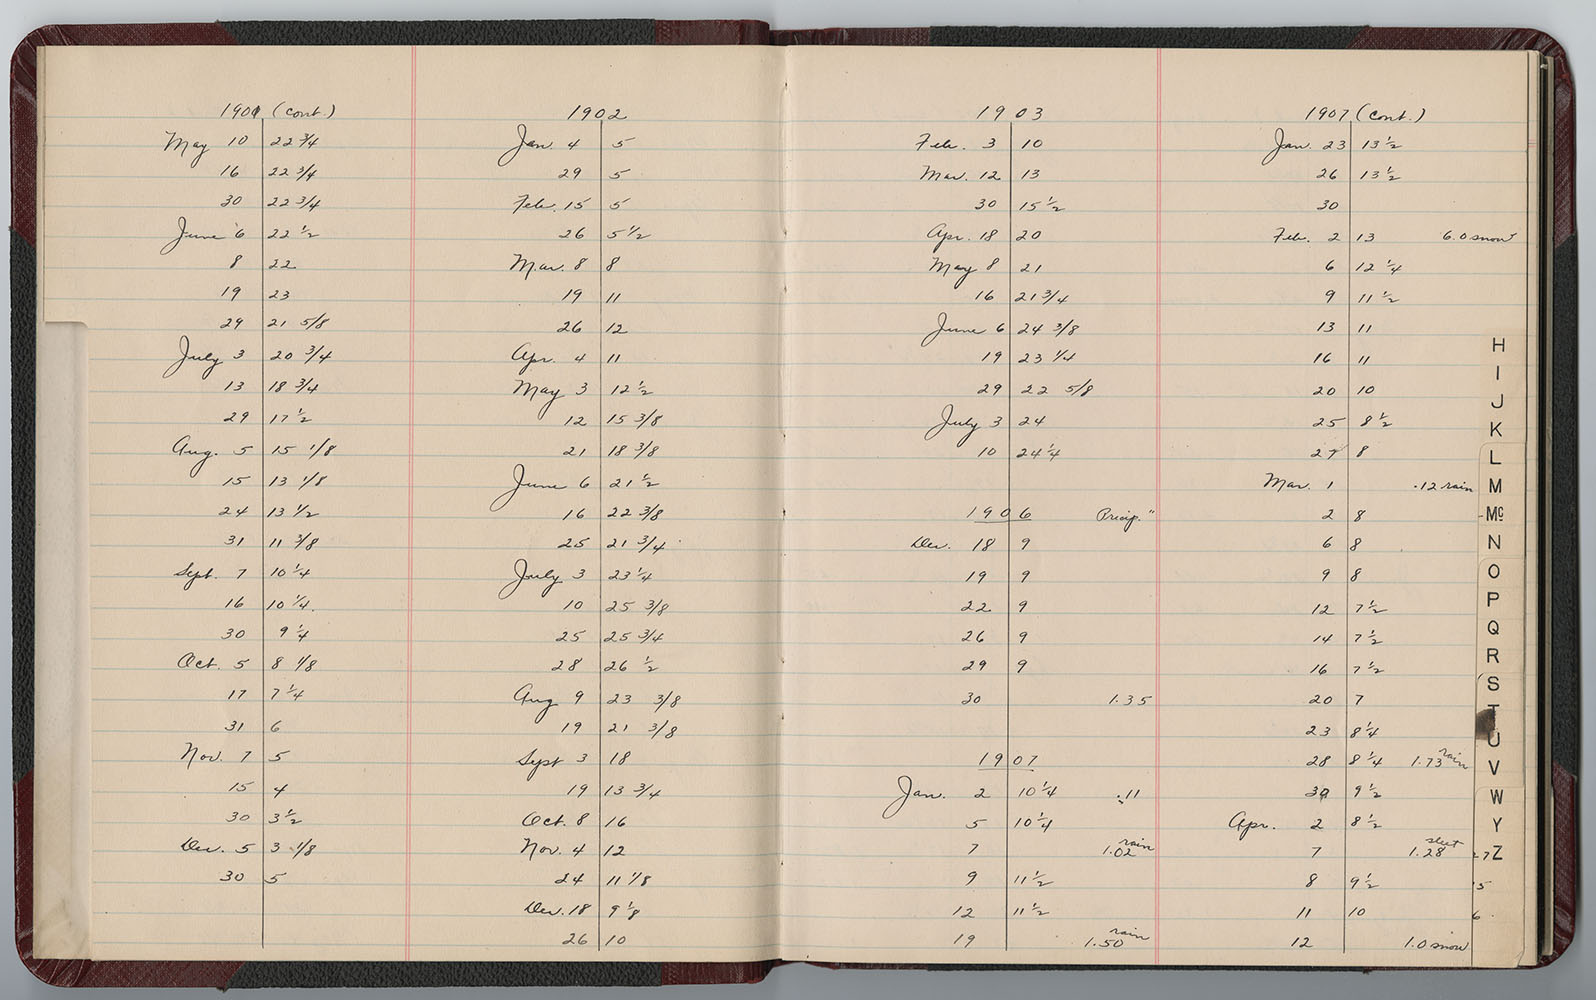 1901 (cont.)
May 10 22 3/4
16 22 3/4
30 22 3/4
June 6 22 1/2
8 22
19 23
29 21 5/8
July 3 20 3/4
13 18 3/4
29 17 1/2
Aug. 5 15 1/8
15 13 1/8
24 13 1/2
31 11 3/8
Sept. 7 10 1/4
16 10 1/4.
30 9 1/4
Oct. 5 8 1/8
17 7 1/4
31 6
Nov. 7 5
15 4
30 3 1/2
Dec. 5 3 1/8
30 5
1902
Jan. 4 5
29 5
Feb. 15 5
26 5 1/2
Mar. 8 8
19 11
26 12
Apr. 4 11
May 3 12 1/2
12 15 3/8
21 18 3/8
June 6 21 1/2
16 22 3/8
25 21 3/4
July 3 23 1/4
10 25 3/8
25 25 3/4
28 26 1/2
Aug 9 23 3/8
19 21 3/8
Sept 3 18
19 13 3/4
Oct. 8 16
Nov. 4 12
24 11 1/8
Dec. 18 9 1/8
26 10
1903
Feb. 3 10
Mar. 12 13
30 15 1/2
Apr. 18 20
May 8 21
16 21 3/4
June 6 24 3/8
19 23 1/4
29 22 5/8
July 3 24
10 24 1/4
1906 Precip."
Dec. 18 9
19 9
22 9
26 9
29 9
30 1.35
1907
Jan. 2 10 1/4 .11
5 10 1/4
7 1.02 rain
9 11 1/2
12 11 1/2
19 1.50 rain
1907 (cont.)
Jan. 23 13 1/2
26 13 1/2
30
Feb. 2 13 6.0 snow
6 12 1/4
9 11 1/2
13 11
16 11
20 10
25 8 1/2
27 8
Mar. 1 .12 rain
2 8
6 8
9 8
12 7 1/2
14 7 1/2
16 7 1/2
20 7
23 8 1/4
28 8 1/4 1.73 rain
30 9 1/2
Apr. 2 8 1/2
7 1.28 sleet
8 9 1/2
11 10
12 1.0 snow
H
I
J
K
L
M
Mc
N
O
P
Q
R
S
T
U
V
W
Y
Z